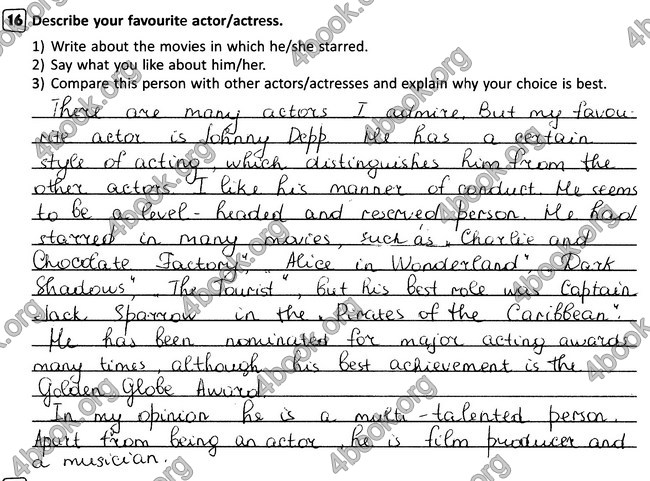 16 Describe your favourite actor/actress.
1) Write about the movies in which he/she starred.
2) Say what you like about him/her.
3) Compare this person with other actors/actresses and explain why your choice is best.
There are many actors I admire. But my favou-
rite actor is Johnny Depp. He has a certain
style of acting, which distinguishes him from the
other actors. I like his manner of conduct. He seems
to be a level-headed and reserved person. He had
starred in many movies, such as „Charlie and
Chocolate Factory", „Alice in Wonderland" „Dark
Shadows", „The Tourist", but his best role was Captain
Jack Sparrow in the „Pirates of the Caribbean".
He has been nominated for major acting awards
many times, although his best achievement is the
Golden Globe Award.
In my opinion he is a multi-talented person.
Apart from being an actor, he is film producer and
a musician.
4book.org